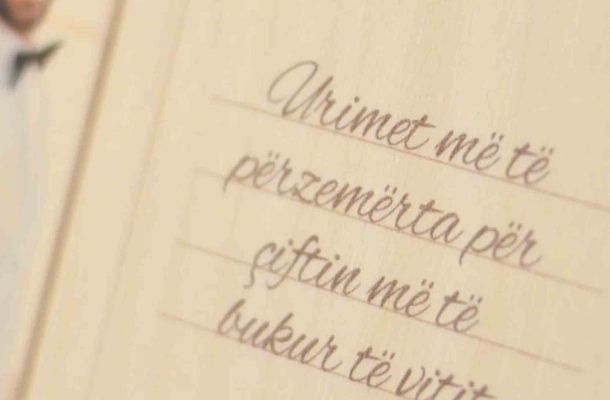 Urimet më të
përzemërta për
çiftin më të
bukur të vitit